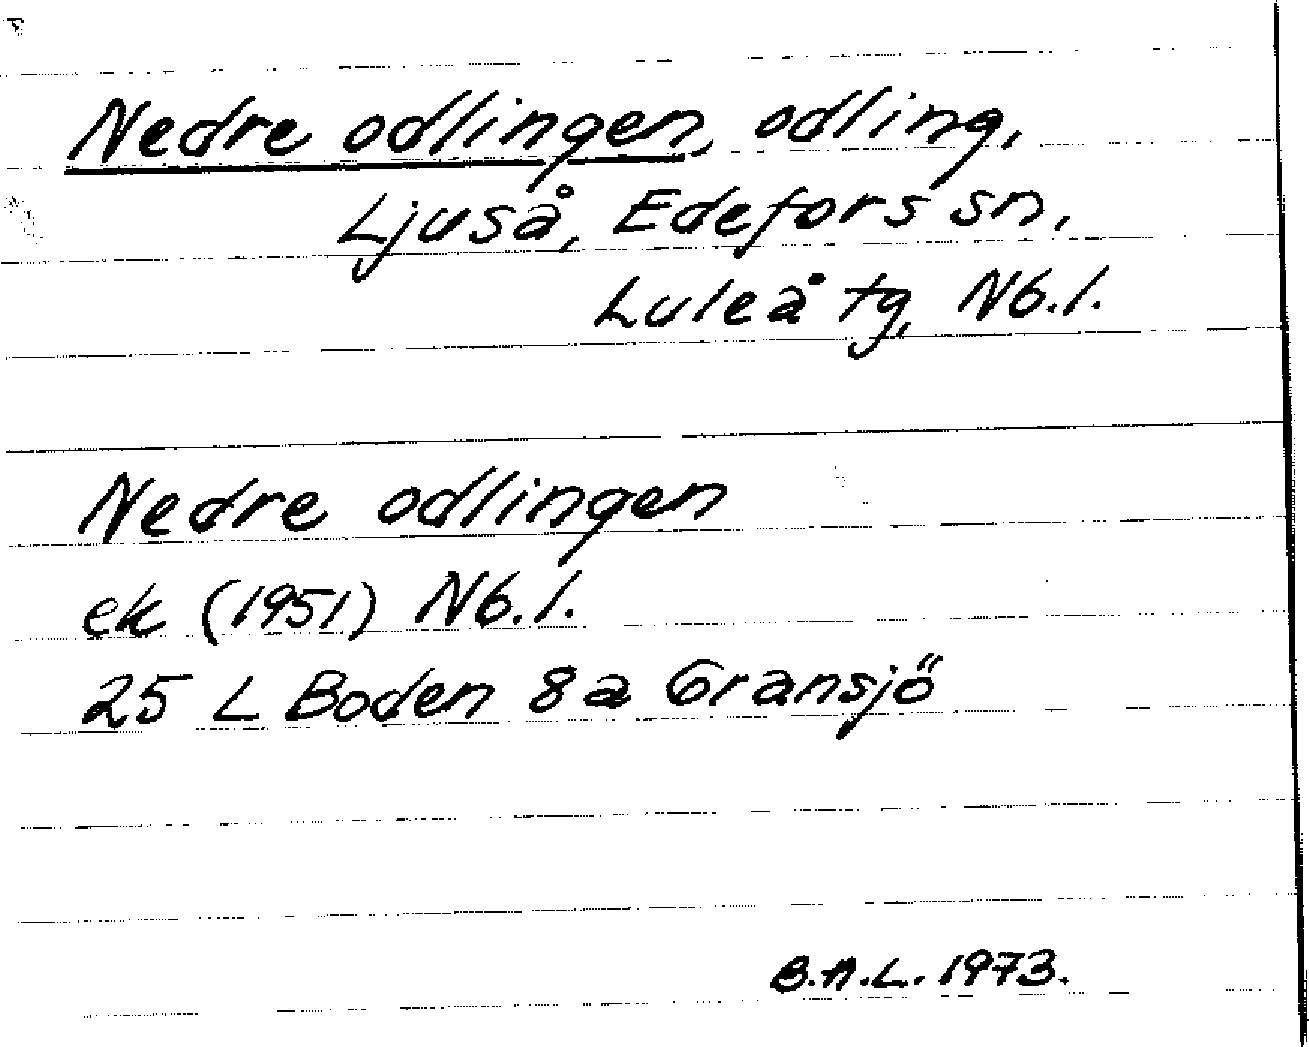 Nedre odlingen, odling,
Ljuså, Edefors sn,
Luleå tg, Nb.l.
Nedre odlingen
ek (1951) Nb.l.
25 L Boden 8a Gransjö
B.A.L. 1973.